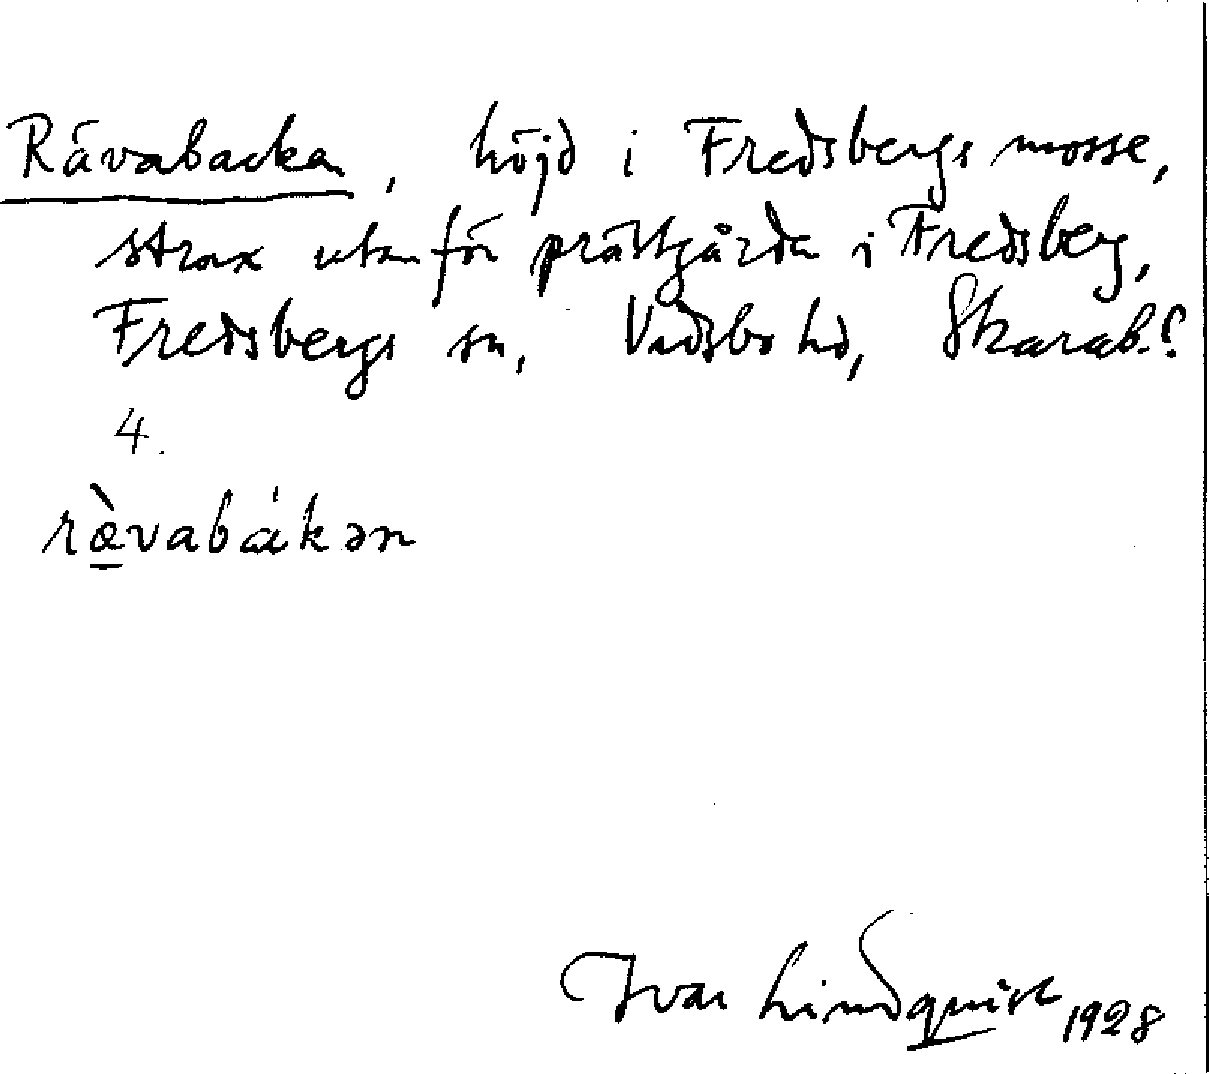 Rävabacka, höjd i Fredsbergs mosse,
strax utanför prästgårda i Fredsberg,
Fredsbergs sn, Vadsbo hd, Skarab.
4.
ræ̀vabákən
Ivar Lindquist 1928